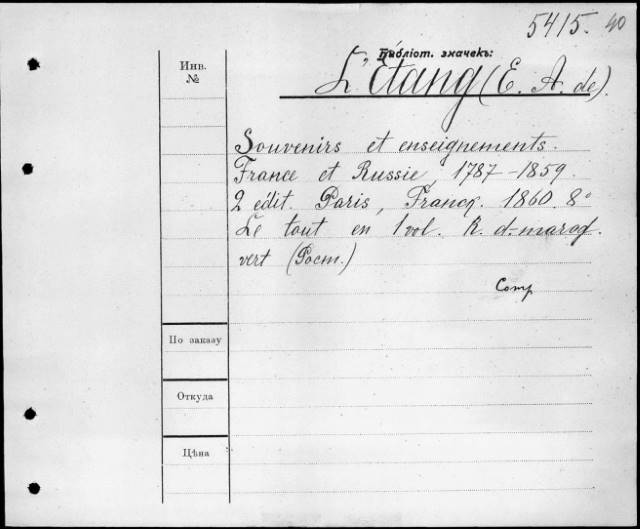 5415. 40
Библіот. значекъ:
L'Étang (E. A. de).
Инв.
№
Souvenirs et enseignements.
France et Russie, 1787-1859.
2 édit. Paris, Franck. 1860. 8°
Le tout en 1 vol. R. d-maroq.
vert (Rocm.)
Comp
По заказу
Откуда
Цѣна